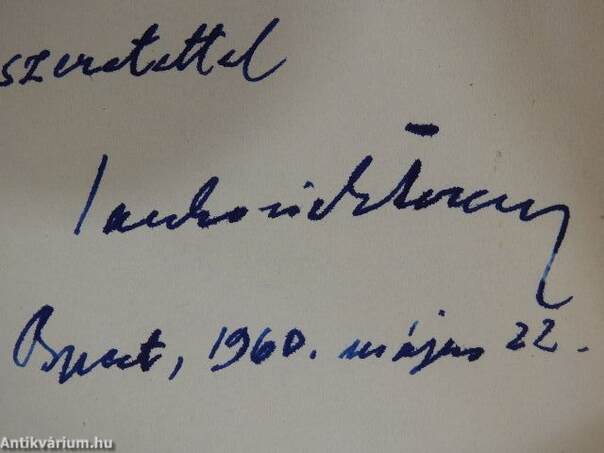 szeretettel
Jankovich Ferenc
Bpest, 1960. május 22.
Antikvárium.hu